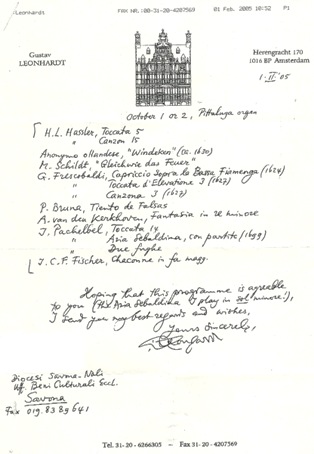 Leonhardt FAX NR.:00-31-20-4207569 01 Feb. 2005 10:52 P1
Gustav
LEONHARDT
Herengracht 170
1016 BP Amsterdam
1.II.'05
October 1 or 2, Pittaluga organ
H.L. Hassler, Toccata 5
" Canzon 15
Anonymo ollandese, "Windeken" (ca. 1620)
M. Schildt, "Gleichwie das Feuer"
G. Frescobaldi, Capriccio sopra la Bassa Fiamenga (1624)
" Toccata d'Elevatione I (1627)
" Canzona 3 (1627)
P. Bruna, Tiento de Falsas
A. van den Kerkhoven, Fantasia in re minore
J. Pachelbel, Toccata 14
" Aria Sebaldina, con partite (1699)
" Due fughe
J.C.F. Fischer, Chaconne in fa magg.
Hoping that this programme is agreable
to you (this Aria Sebaldina I play in sol minore!),
I send you my best regards and wishes,
Yours sincerely,
Diocesi Savona-Noli
Uff. Beni Culturali Eccl.
Savona
Fax 019.8389641
Tel. 31-20-6266305 – Fax 31-20-4207569